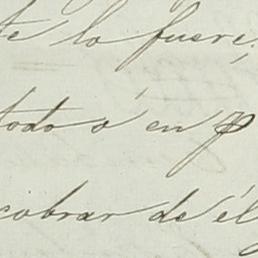 te lo fuere;
todo ó en p
cobrar de él